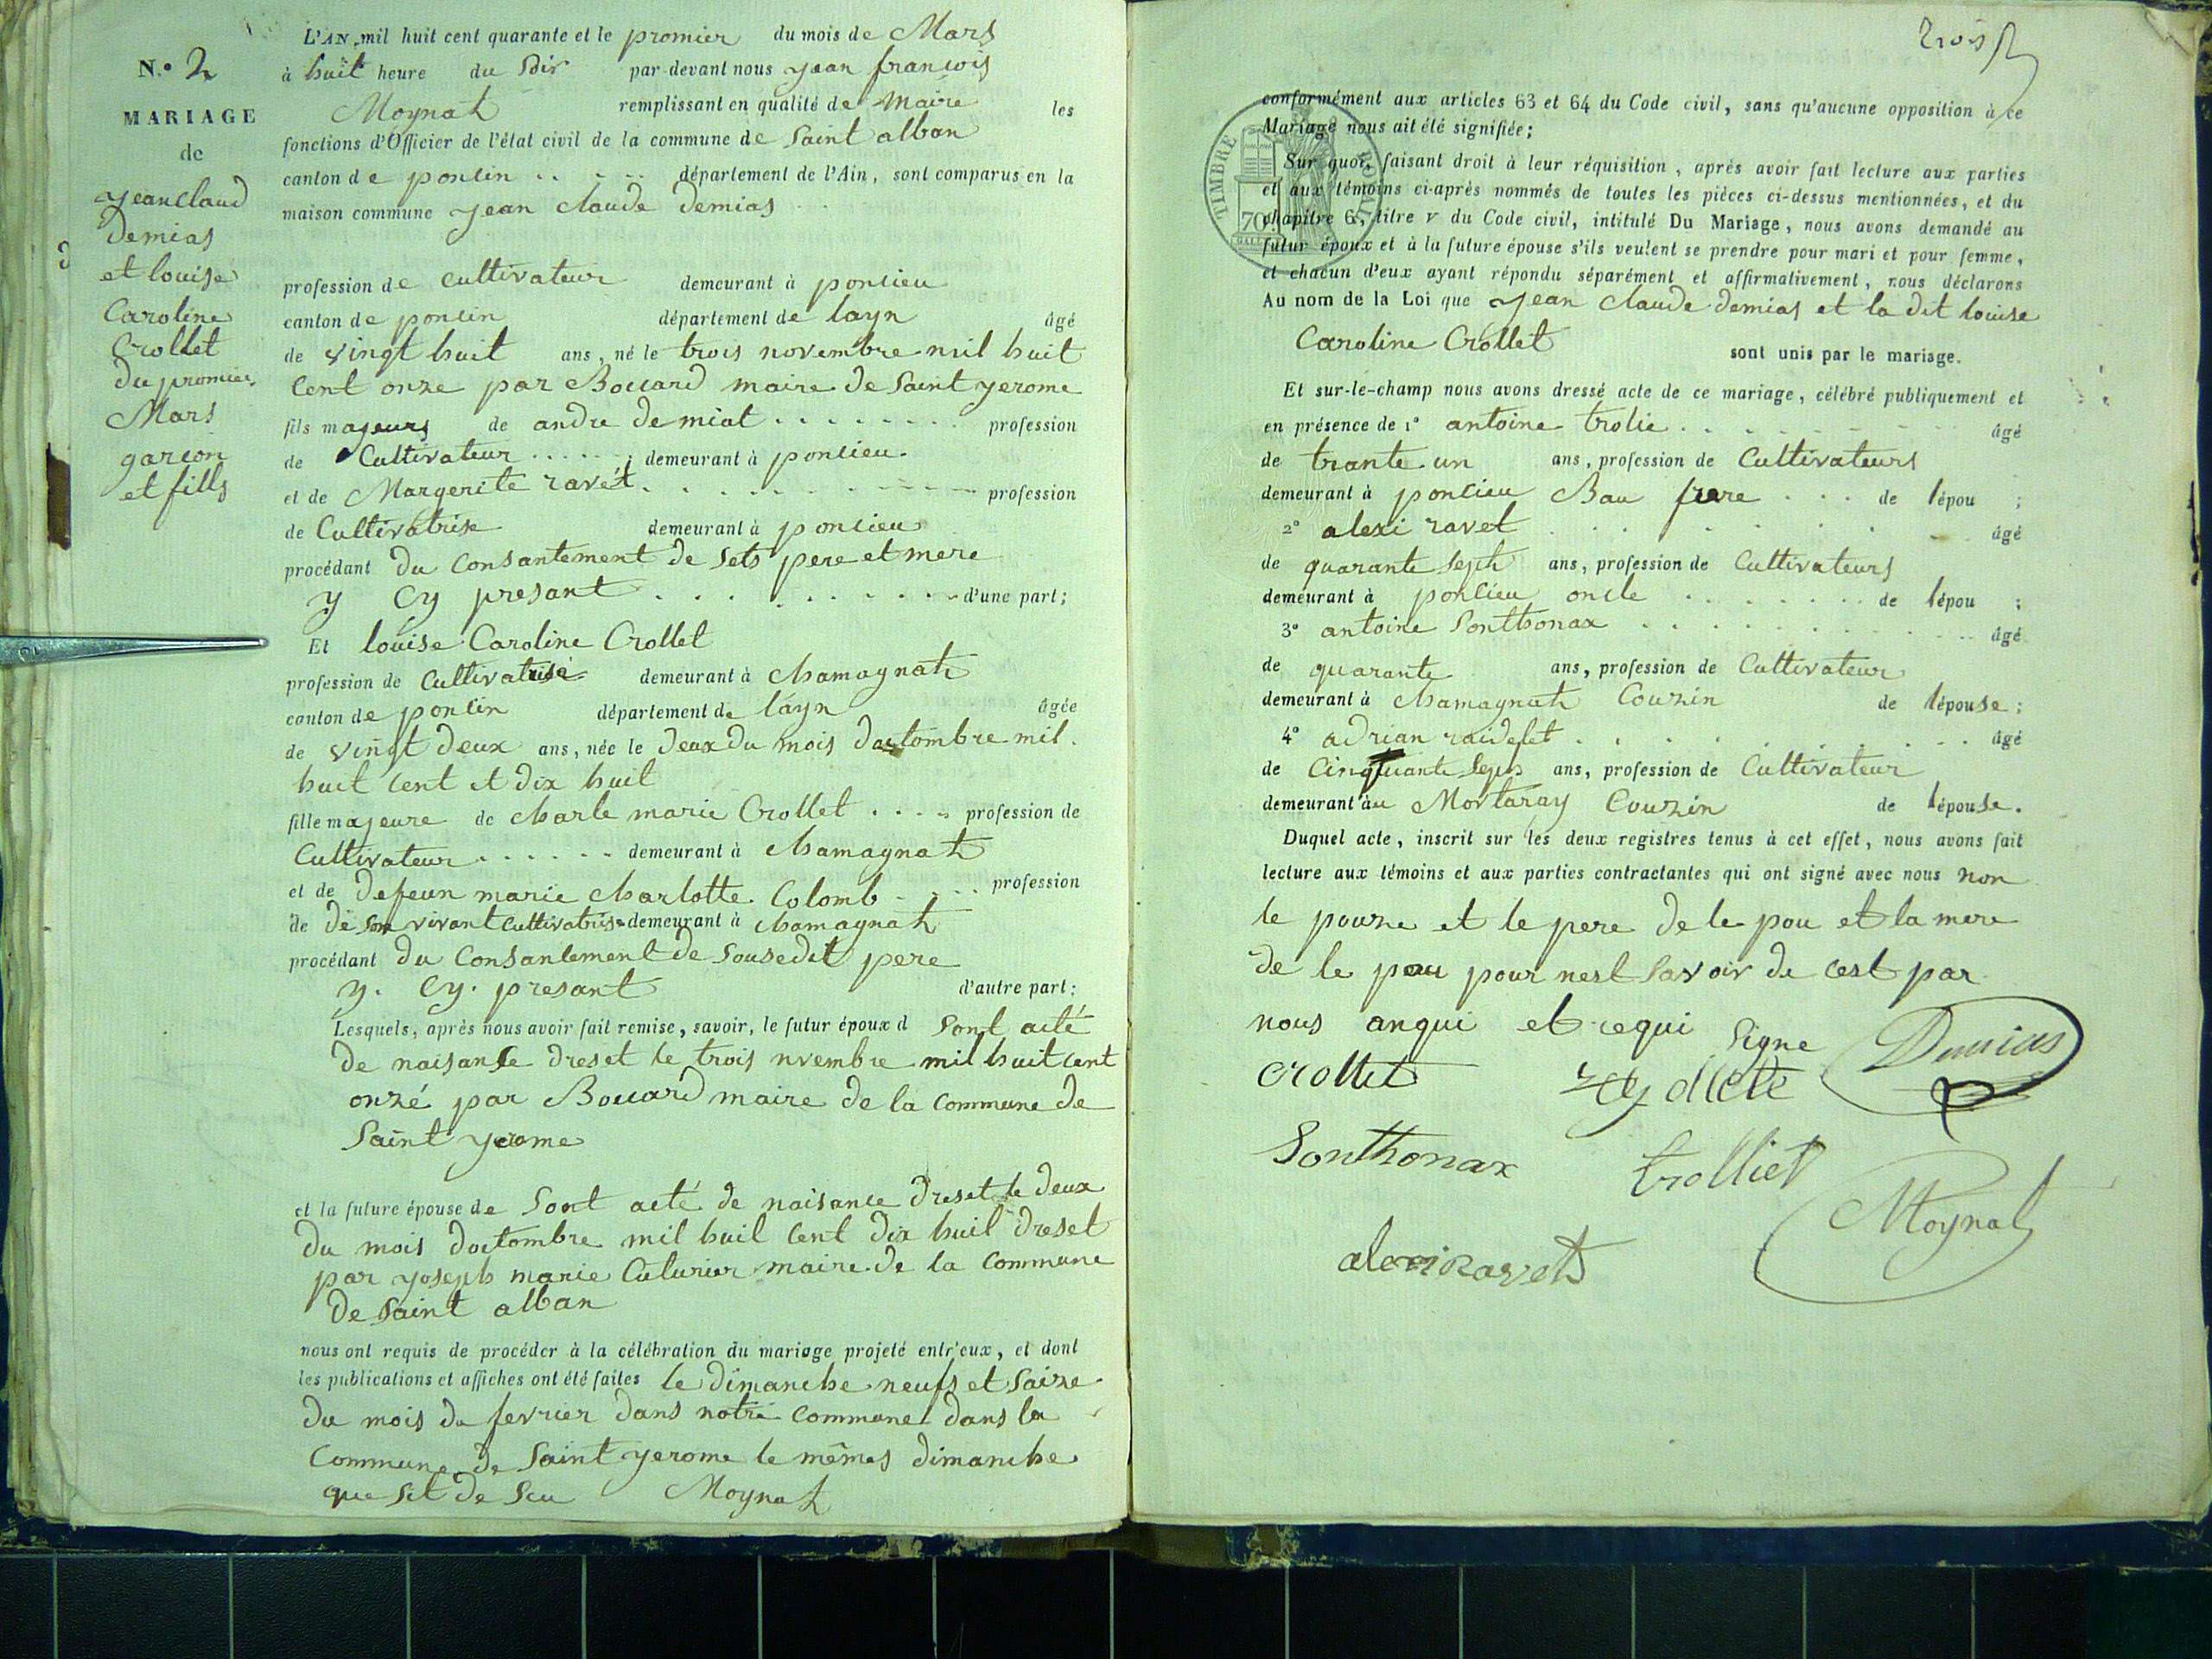 N.° 2
MARIAGE
de
Jean claud
Demias
et louise
Caroline
Crollet
du promier
Mars
garcon
et fills
L'AN mil huit cent quarante et le promier du mois de Mars
à huit heure du Soir par-devant nous jean francois
Moynat remplissant en qualité de Maire les
fonctions d'Officier de l'état civil de la commune de Saint alban
canton de poncin département de l'Ain, sont comparus en la
maison commune jean claude demias
profession de cultivateur demeurant à poncieu
canton de poncin département de layn âgé
de vingt huit ans, né le trois novembre mil huit
Cent onze par Bouard maire de Saint yerome
fils majeurs de andre demiat profession
de Cultivateur demeurant à poncieu
et de Margerite ravet profession
de Cultivatrise demeurant à poncieu
procédant du Consantement de Sets pere et mere
y Cy presant d'une part;
Et louise Caroline Crollet
profession de Cultivatrise demeurant à chamagnat
canton de poncin département de layn âgée
de vingt deux ans, née le deux du mois doctombre mil
huit Cent et dix huit
fille majeure de charle marie Crollet profession de
Cultivateur demeurant à chamagnat
et de defeun marie charlotte Colomb profession
de de Son vivant Cultivatrise demeurant à chamagnat
procédant du Consantement de Sousedit pere
y. Cy. presant d'autre part;
Lesquels, après nous avoir fait remise, savoir, le futur époux d Sont acté
de naisanse dreset le trois nvembre mil huit Cent
onzé par Bouard maire de la Commune de
Saint yerome
et la future épouse de Sont acté de naisance dreset le deux
du mois doctombre mil huit Cent dix huit dreset
par yoseph marie Cuturier maire de la Commune
de Saint alban
nous ont requis de procéder à la célébration du mariage projeté entr'eux, et dont
les publications et affiches ont été faites le dimanche neufs et Saize
du mois de fevrier dans notre Commune dans la
Commune de Saint yerome le mêmes dimanche
que Set de Seu Moynat
trois
conformément aux articles 63 et 64 du Code civil, sans qu'aucune opposition à ce
Mariage nous ait été signifiée;
TIMBRE ROYAL
70
Sur quoi, faisant droit à leur réquisition, après avoir fait lecture aux parties
et aux témoins ci-après nommés de toutes les pièces ci-dessus mentionnées, et du
chapitre 6, titre v du Code civil, intitulé Du Mariage, nous avons demandé au
futur époux et à la future épouse s'ils veulent se prendre pour mari et pour femme,
et chacun d'eux ayant répondu séparément et affirmativement, nous déclarons
Au nom de la Loi que jean claude demias et la dit louise
Caroline Crollet sont unis par le mariage.
Et sur-le-champ nous avons dressé acte de ce mariage, célébré publiquement et
en présence de 1° antoine trolie âgé
de trante un ans, profession de Cultivateurs
demeurant à poncieu Bau frere de lépou ;
2° alexi ravet âgé
de quarante Sept ans, profession de Cultivateurs
demeurant à poncieu oncle de lépou ;
3° antoine Sonthonax âgé
de quarante ans, profession de Cultivateur
demeurant à chamagnat Couzin de lépouse ;
4° adrian raidelet âgé
de Cinquante Sept ans, profession de Cultivateur
demeurant au Mortaray Couzin de lépouse.
Duquel acte, inscrit sur les deux registres tenus à cet effet, nous avons fait
lecture aux témoins et aux parties contractantes qui ont signé avec nous non
le pouze et le pere de le pou et la mere
de le pou pour nest Savoir de Cest par
nous anqui et requi Signe Demias
Crollet
Sonthonax trolliet
Moynat
alexi Ravet